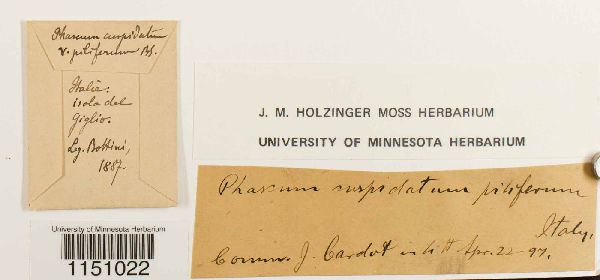 Phascum cuspidatum
v. piliferum BS.
Italia:
isola del
Giglio.
Leg. Bottini,
1887.
J. M. HOLZINGER MOSS HERBARIUM
UNIVERSITY OF MINNESOTA HERBARIUM
Phascum cuspidatum piliferum
Italy.
Comm. J. Cardot in litt Apr. 22-97.
University of Minnesota Herbarium
1151022